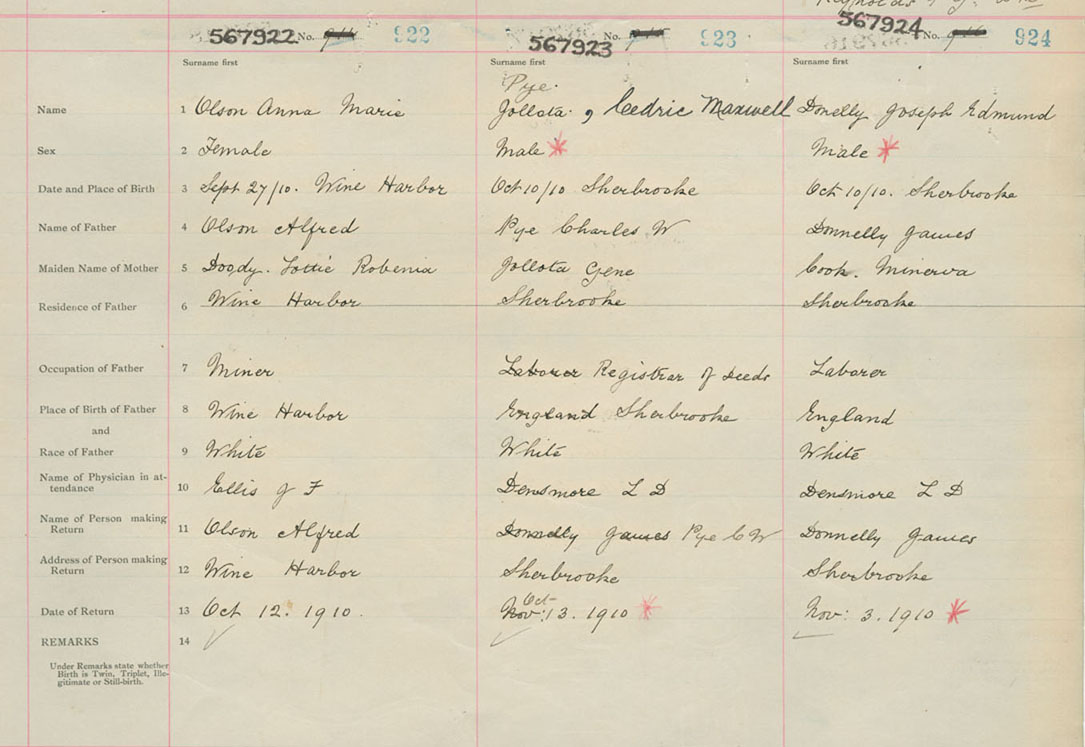 567922 No. 922 567923 No. 923 567924 No. 924
Surname first Surname first Surname first
Pye.
Name 1 Olson Anna Marie Jollota , Cedric Maxwell Donelly Joseph Edmund
Sex 2 Female Male Male
Date and Place of Birth 3 Sept 27/10. Wine Harbor Oct 10/10 Sherbrooke Oct 10/10. Sherbrooke
Name of Father 4 Olson Alfred Pye Charles W Donnelly James
Maiden Name of Mother 5 Doody. Lottie Robenia Jollota Gene Cook. Minerva
Residence of Father 6 Wine Harbor Sherbrooke Sherbrooke
Occupation of Father 7 Miner Laborer Registrar of Deeds Laborer
Place of Birth of Father 8 Wine Harbor England Sherbrooke England
and
Race of Father 9 White White White
Name of Physician in at-
tendance 10 Ellis J F Densmore L D Densmore L D
Name of Person making
Return 11 Olson Alfred Donnelly James Pye C W Donnelly James
Address of Person making
Return 12 Wine Harbor Sherbrooke Sherbrooke
Oct
Date of Return 13 Oct 12. 1910. Nov: 13. 1910 Nov: 3. 1910
REMARKS 14
Under Remarks state whether
Birth is Twin, Triplet, Ille-
gitimate or Still-birth.